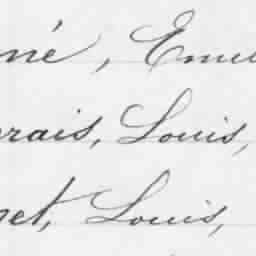 né, Emil
rais, Louis,
et, Louis,